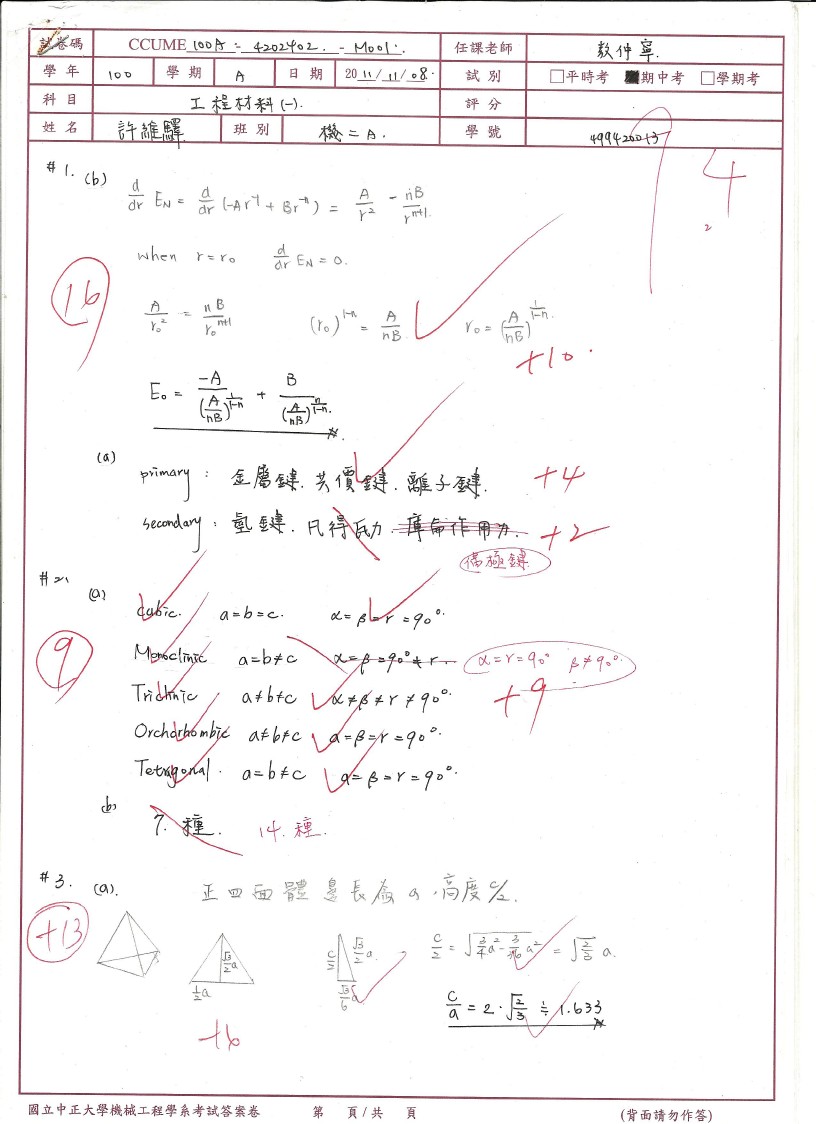 試卷碼 CCUME 100A - 4202402. - M001. 任課老師 敖仲寧.
學年 100 學期 A 日期 2011/11/08. 試別 □平時考 ■期中考 □學期考
科目 工程材料(一). 評分
姓名 許維驛 班別 機二A. 學號 499420013
94
#1. (b) d/dr E_N = d/dr (-Ar^-1 + Br^-n) = A/r^2 - nB/r^n+1.
when r=r₀ d/dr E_N = 0.
16
A/r₀^2 = nB/r₀^n+1 (r₀)^1-n = A/nB. r₀ = (A/nB)^1/1-n.
+10.
E₀ = -A/(A/nB)^1/1-n + B/(A/nB)^n/1-n.
(a) primary : 金屬鍵. 共價鍵. 離子鍵. +4
secondary : 氫鍵. 凡得瓦力. +2
偶極鍵
#2. (a) cubic. a=b=c. α=β=r=90°.
9
Monoclinic a=b≠c α=β=90°≠r. α=r=90° β≠90°.
Triclinic a≠b≠c α≠β≠r≠90°. +9
Orthorhombic a≠b≠c α=β=r=90°.
Tetragonal. a=b≠c α=β=r=90°.
(b) 7.種. 14.種.
#3. (a). 正四面體邊長為a,高度c/2.
+13
√3/2 a
1/2 a
c/2 √3/2 a.
√3/6 a
c/2 = √(3/4 a^2 - 3/36 a^2) = √(2/3) a.
c/a = 2·√(2/3) ≒ 1.633
+6
國立中正大學機械工程學系考試答案卷 第 頁/共 頁 (背面請勿作答)